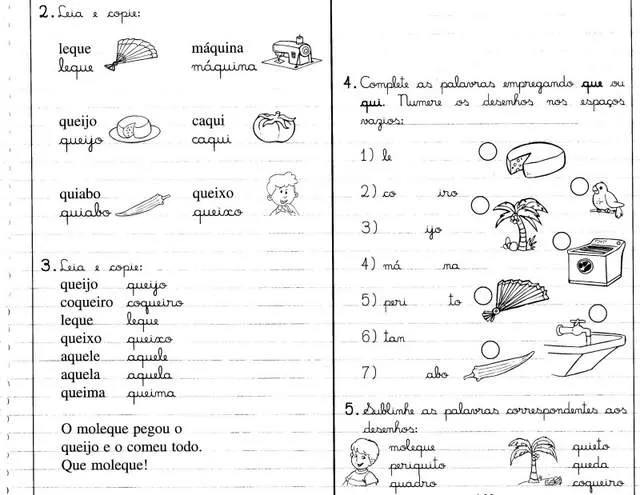 2. Leia e copie:
leque
leque
máquina
máquina
queijo
queijo
caqui
caqui
quiabo
quiabo
queixo
queixo
3. Leia e copie:
queijo queijo
coqueiro coqueiro
leque leque
queixo queixo
aquele aquele
aquela aquela
queima queima
O moleque pegou o
queijo e o comeu todo.
Que moleque!
4. Complete as palavras empregando que ou
qui. Numere os desenhos nos espaços
vazios:
1) le
2) co iro
3) yo
4) má na
5) peri to
6) tan
7) abo
5. Sublinhe as palavras correspondentes aos
desenhos:
moleque
periquito
quadro
quieto
queda
coqueiro